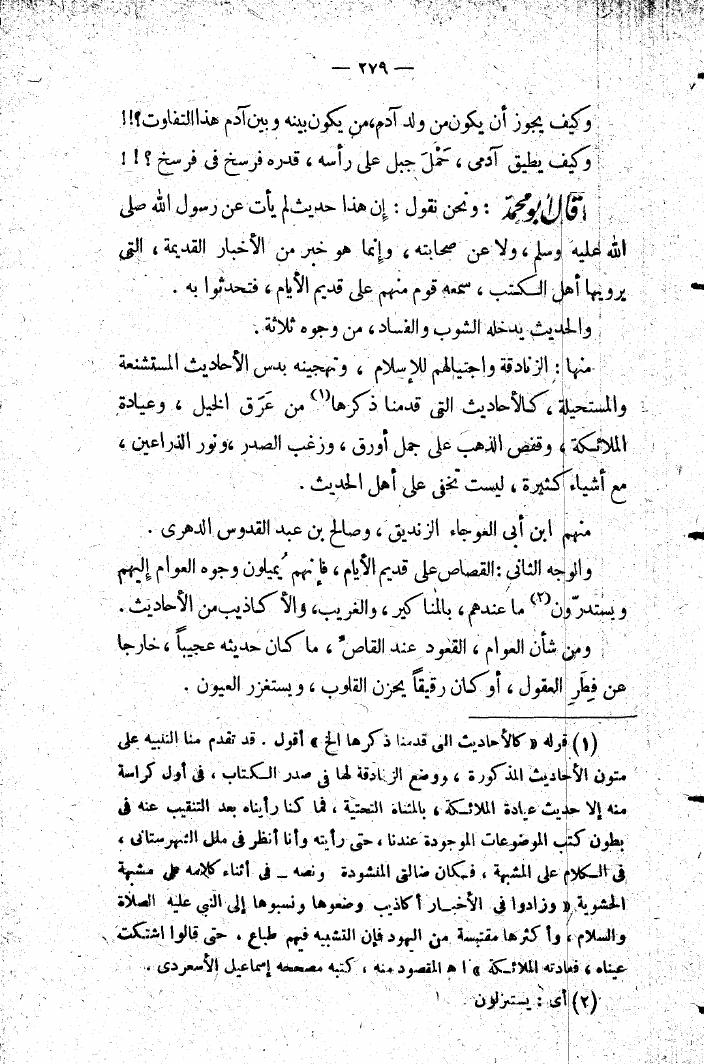 — ٢٧٩ —
وكيف يجوز أن يكون من ولد آدم، من يكون بينه وبين آدم هذا التفاوت؟!!
وكيف يطيق آدمى ، حَمْلَ جبل على رأسه ، قدره فرسخ فى فرسخ ؟!!
قال أبو محمد : ونحن نقول : إن هذا حديث لم يأت عن رسول الله صلى
الله عليه وسلم ، ولا عن صحابته ، وإنما هو خبر من الأخبار القديمة ، التى
يرويها أهل الكتب ، سمعه قوم منهم على قديم الأيام ، فتحدثوا به .
والحديث يدخله الشوب والفساد ، من وجوه ثلاثة .
منها : الزنادقة واجتيالهم للإسلام ، وتهجينه بدس الأحاديث المستشنعة
والمستحيلة ، كالأحاديث التى قدمنا ذكرها (١) من عَرَق الخيل ، وعيادة
الملائكة ، وقفص الذهب على جمل أورق ، وزغب الصدر ، ونور الذراعين ،
مع أشياء كثيرة ، ليست تخفى على أهل الحديث .
منهم ابن أبى العوجاء الزنديق ، وصالح بن عبد القدوس الدهرى .
والوجه الثانى : القصاص على قديم الأيام ، فإنهم يُميلون وجوه العوام إليهم
ويستدرّون (٢) ما عندهم ، بالمناكير ، والغريب ، والأكاذيب من الأحاديث .
ومن شأن العوام ، القعود عند القاص ، ما كان حديثه عجيباً ، خارجا
عن فِطَرِ العقول ، أو كان رقيقاً يحزن القلوب ، ويستغزر العيون .
(١) قوله « كالأحاديث التى قدمنا ذكرها الخ » أقول . قد تقدم منا التنبيه على
متون الأحاديث المذكورة ، ووضع الزنادقة لها فى صدر الكتاب ، فى أول كراسة
منه إلا حديث عيادة الملائكة ، بالمثناة التحتية ، فما كنا رأيناه بعد التنقيب عنه فى
بطون كتب الموضوعات الموجودة عندنا ، حتى رأيته وأنا أنظر فى ملل الشهرستانى ،
فى الكلام على المشبهة ، فكان ضالتى المنشودة ونصه ــ فى أثناء كلامه على مشبهة
الحشوية « وزادوا فى الأخبار أكاذيب وضعوها ونسبوها إلى النبي عليه الصلاة
والسلام ، وأكثرها مقتبسة من اليهود فإن التشبيه فيهم طباع . حتى قالوا اشتكت
عيناه ، فعادته الملائكة » اه المقصود منه ، كتبه مصححه إسماعيل الأسعردى .
(٢) أى : يستنزلون